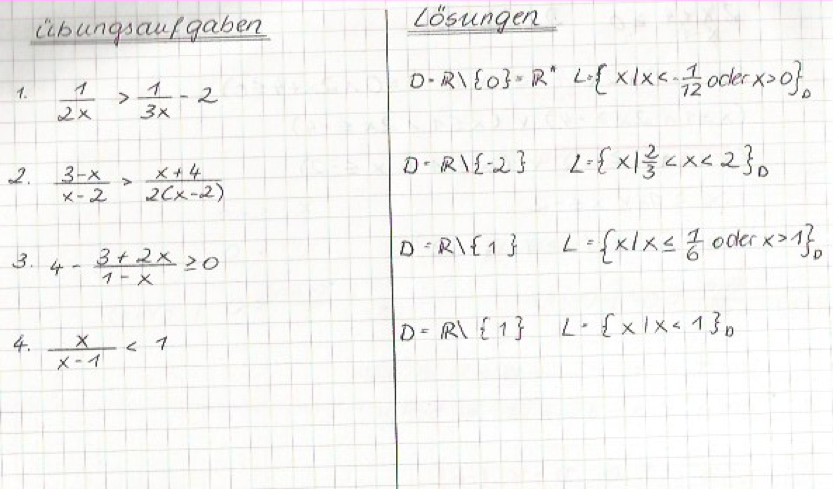 Übungsaufgaben
1. 1/2x > 1/3x - 2
2. 3-x/x-2 > x+4/2(x-2)
3. 4 - 3+2x/1-x ≥ 0
4. x/x-1 < 1
Lösungen
D = ℝ\{0} = ℝ* L = { x | x < -1/12 oder x > 0}D
D = ℝ\{-2} L = { x | 2/3 < x < 2}D
D = ℝ\{1} L = {x | x ≤ 1/6 oder x > 1}D
D = ℝ\{1} L = { x | x < 1}D